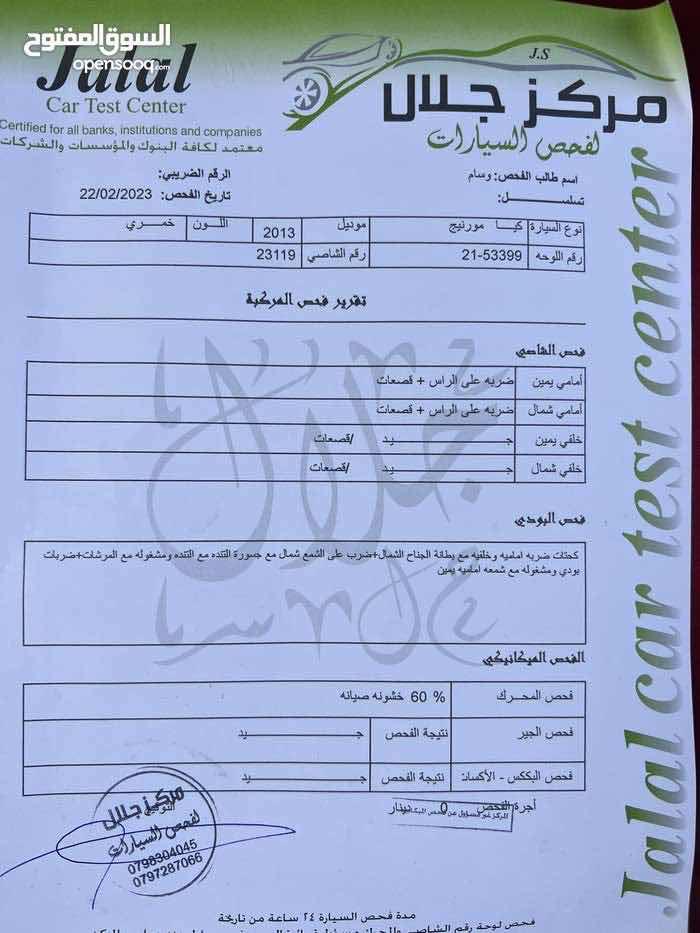 السوق المفتوح
opensooq.com
Jalal
Car Test Center
Certified for all banks, institutions and companies
معتمد لكافة البنوك والمؤسسات والشركات
J.S
مركز جلال
لفحص السيارات
اسم طالب الفحص: وسام
الرقم الضريبي:
تسلسل:
تاريخ الفحص: 22/02/2023
نوع السيارة كيا مورنيج موديل 2013 اللون خمري
رقم اللوحه 21-53399 رقم الشاصي 23119
تقرير فحص المركبة
فحص الشاصي
أمامي يمين ضربه على الراس + قصعات
أمامي شمال ضربه على الراس + قصعات
خلفي يمين جيد /قصعات
خلفي شمال جيد /قصعات
فحص البودي
كحتات ضربه اماميه وخلفيه مع بطانة الجناح الشمال+ضرب على الشمع شمال مع جسورة التنده مع التنده ومشغوله مع المرشات+ضربات
بودي ومشغوله مع شمعه اماميه يمين
جلال
الفحص الميكانيكي
فحص المحرك 60 % خشونه صيانه
فحص الجير نتيجة الفحص جيد
فحص البككس - الأكسات نتيجة الفحص جيد
أجرة الفحص 0 دينار
المركز غير مسؤول عن فحص
التوقيع
مركز جلال
لفحص السيارات
0798304045
0797287066
مدة فحص السيارة ٢٤ ساعة من تاريخة
فحص لوحة رقم الشاصي
Jalal car test center